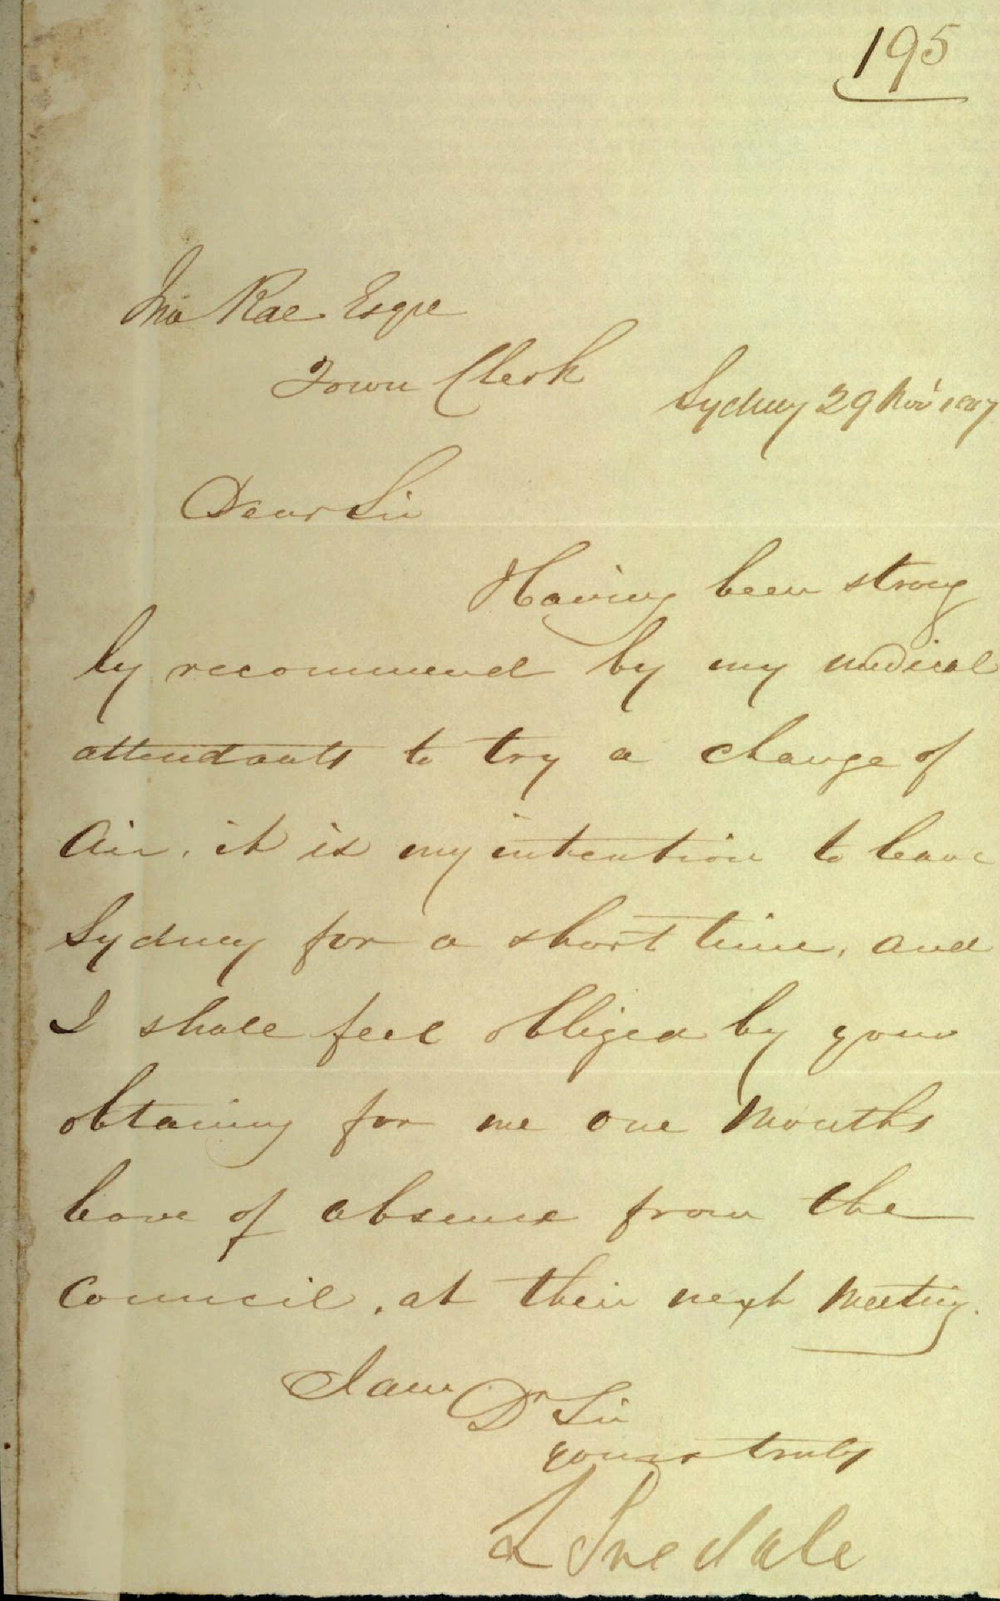 195
Jno Rae Esqre
Town Clerk
Sydney 29 Nov 1847
Dear Sir
Having been strong
ly recommend by my medical
attendants to try a change of
Air, it is my intention to leave
Sydney for a short time, and
I shall feel obliged by your
obtaining for me one Months
leave of absence from the
Council, at their next Meeting.
I am Dr Sir
yours truly
L Iredale